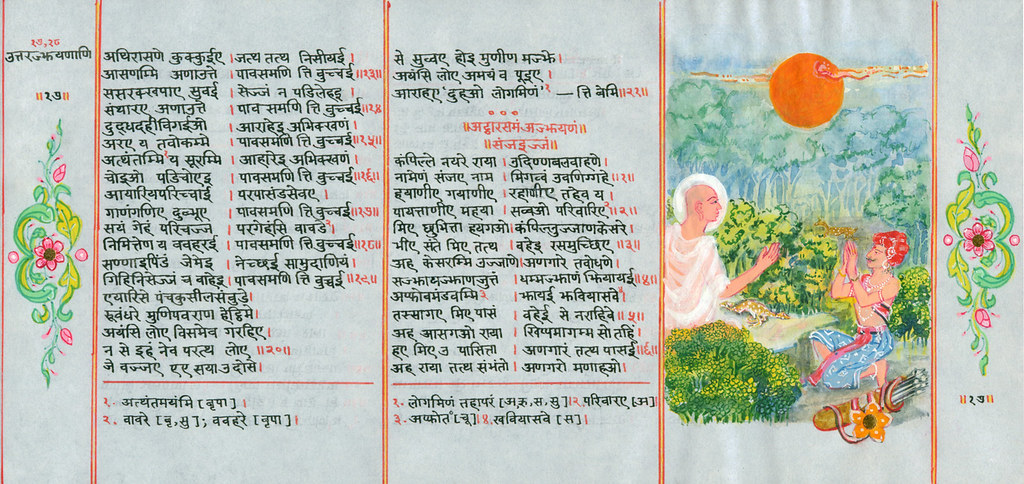 १७,१८
उत्तरज्झयणाणि
॥१७॥
अथिरासणे कुक्कुईए । जत्थ तत्थ निसीयई।
आसणम्मि अणाउत्ते । पावसमणि त्ति वुच्चई॥१३॥
ससरक्खपाए सुवई । सेज्जं न पडिलेहइ।
संथारए अणाउत्ते । पावसमणि त्ति वुच्चई॥१४
दुद्धदहीविगईओ । आहारेइ अभिक्खणं।
अरए य तवोकम्मे । पावसमणि त्ति वुच्चई॥१५॥
अत्थंतम्मि१ य सूरम्मि । आहारेइ अभिक्खणं।
चोइओ पडिचोएइ । पावसमणि त्ति वुच्चई॥१६॥
आयरियपरिच्चाई । परपासंडसेवए।
गाणंगणिए दुब्भूए । पावसमणि त्ति वुच्चई॥१७॥
सयं गेहं परिचज्ज । परगेहंसि वावडे२।
निमित्तेण य ववहरई । पावसमणि त्ति वुच्चई॥१८॥
सण्णाइपिंडं जेमेइ । नेच्छई सामुदाणियं।
गिहिनिसेज्जं च वाहेइ । पावसमणि त्ति वुच्चई॥१९॥
एयारिसे पंचकुसीलसंवुडे।
रूवंधरे मुणिपवराण हेट्ठिमे।
अयंसि लोए विसमेव गरहिए
न से इहं नेव परत्थ लोए ॥२०॥
जे वज्जए एए सया उ दोसे।
१. अत्थंतमयंमि [वृपा]।
२. वावरे [बृ,सु]; ववहरे [वृपा]।
से सुव्वए होइ मुणीण मज्झे।
अयंसि लोए अमयं व पूइए।
आराहए 'दुहओ लोगमिणं'१ — त्ति बेमि॥२१॥
॥अट्ठारसमं अज्झयणं॥
॥संजइज्जं॥
कंपिल्ले नयरे राया । उदिण्णबलवाहणे।
नामेणं संजए नाम । मिगव्वं उवणिग्गए॥१॥
हयाणीए गयाणीए । रहाणीए तहेव य।
पायत्ताणीए महया । सव्वओ परिवारिए२॥२॥
मिए छुभित्ता हयगओ । कंपिल्लुज्जाणकेसरे।
भीए संते मिए तत्थ । वहेइ रसमुच्छिए॥३॥
अह केसरम्मि उज्जाणे । अणगारे तवोधणे।
सज्झायज्झाणजुत्ते । धम्मज्झाणं झियायई॥४॥
अप्फोवमंडवम्मि३ । झायई झवियासवे४।
तस्सागए मिए पासं । वहेई से नराहिवे॥५॥
अह आसगओ राया । खिप्पमागम्म सो तहिं।
हए मिए उ पासित्ता । अणगारं तत्थ पासई॥६॥
अह राया तत्थ संभंतो । अणगारो मणाहओ।
१. लोगमिणं तहापरं [अ,क्र,स,सु]। २. परिवारए [अ]।
३. अप्फोत॰ [चू]। ४. खवियासवे [स]।
॥१७॥